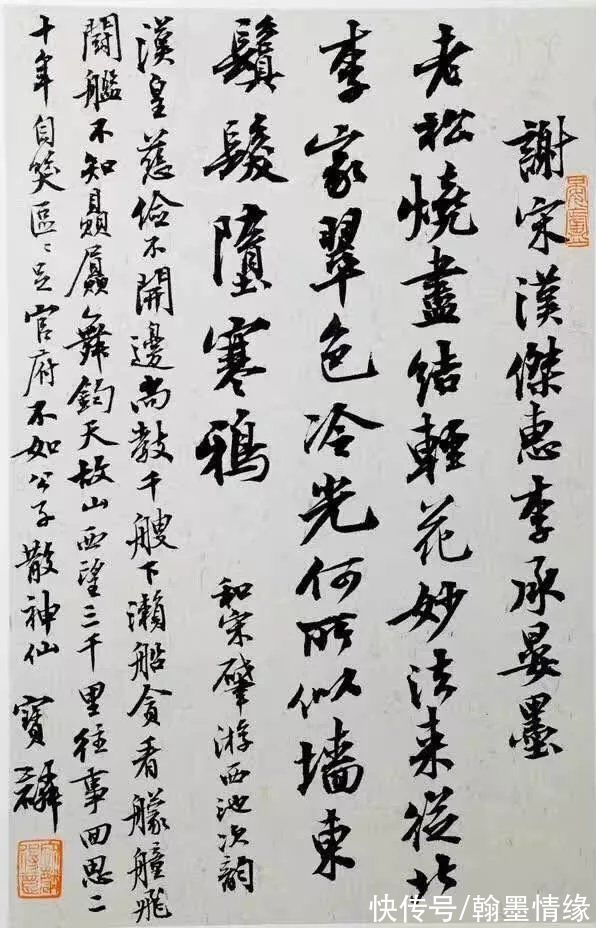 謝宋漢傑惠李承晏墨
老松燒盡結輕花妙法来從北
李家翠色冷光何所似墙東
鬒髮墮寒鴉
和宋肇游西池次韵
漢皇慈儉不開邊尚教千艘下瀨船貪看艨艟飛
闘艦不知贔屭舞鈞天故山西望三千里往事回思二
十年自笑區〻足官府不如公子散神仙 寶麟
快传号/翰墨情缘